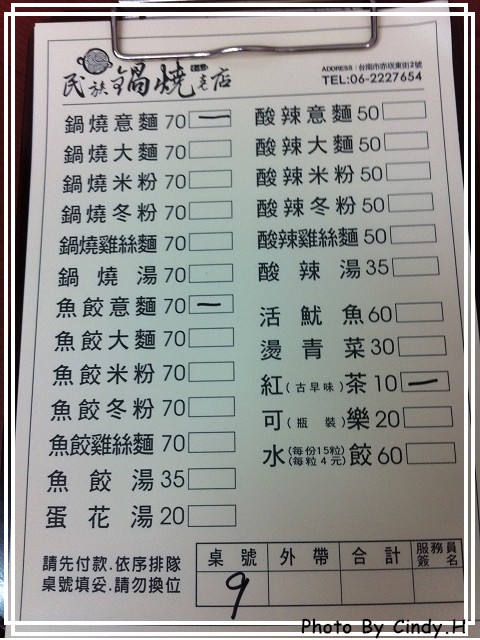 民族鍋燒老店
ADDRESS：台南市赤崁東街2號
TEL:06-2227654
鍋燒意麵 70 一
鍋燒大麵 70
鍋燒米粉 70
鍋燒冬粉 70
鍋燒雞絲麵 70
鍋燒湯 70
魚餃意麵 70 一
魚餃大麵 70
魚餃米粉 70
魚餃冬粉 70
魚餃雞絲麵 70
魚餃湯 35
蛋花湯 20
酸辣意麵 50
酸辣大麵 50
酸辣米粉 50
酸辣冬粉 50
酸辣雞絲麵 50
酸辣湯 35
活魷魚 60
燙青菜 30
紅(古早味)茶 10 一
可(瓶裝)樂 20
水(每份15粒)(每粒4元)餃 60
請先付款.依序排隊
桌號填妥.請勿換位
桌號 外帶 合計 服務員簽名
9
Photo By Cindy.H